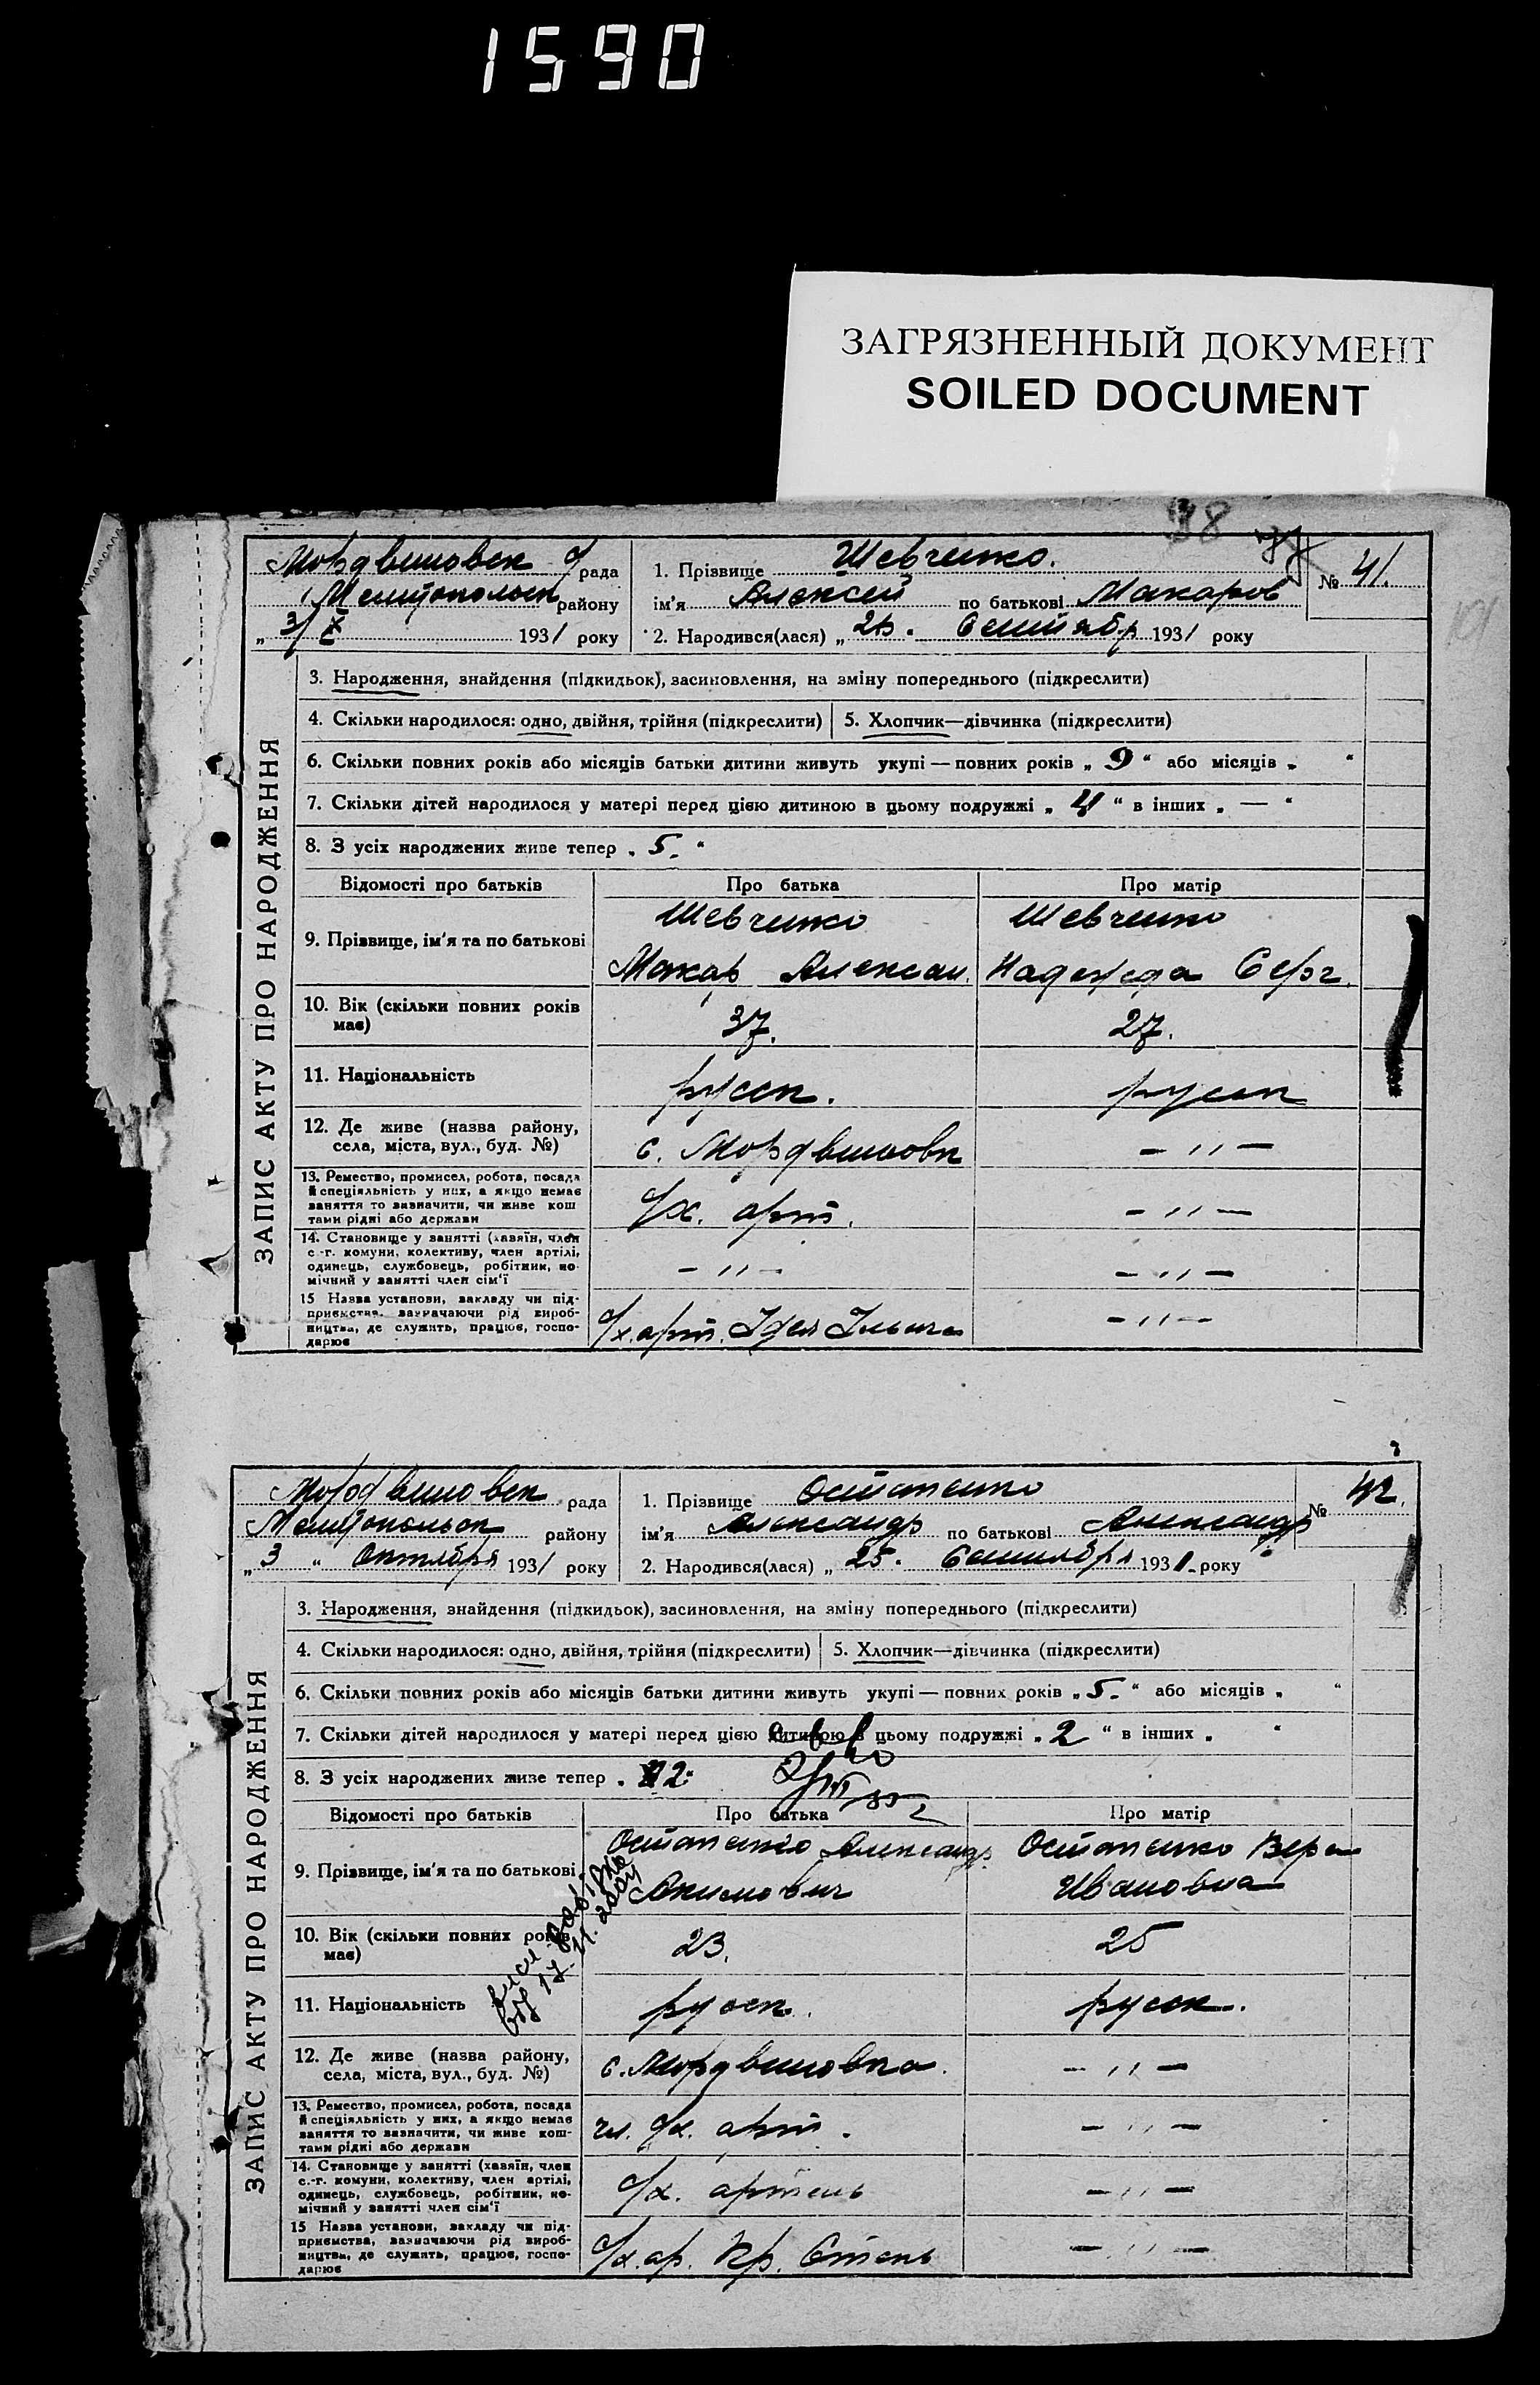 1590
ЗАГРЯЗНЕННЫЙ ДОКУМЕНТ
SOILED DOCUMENT
38
ЗАПИС АКТУ ПРО НАРОДЖЕННЯ
Мордвиновск с/рада
Мелитопольск району
„3/X 1931 року
1. Прізвище Шевченко.
№ 41.
ім'я Алексей по батькові Макаров
2. Народився(лася) „ Сентябр 1931 року
3. Народження, знайдення (підкидьок), засиновлення, на зміну попереднього (підкреслити)
4. Скільки народилося: одно, двійня, трійня (підкреслити) 5. Хлопчик—дівчинка (підкреслити)
6. Скільки повних років або місяців батьки дитини живуть укупі — повних років „ 9 “ або місяців „ “
7. Скільки дітей народилося у матері перед цією дитиною в цьому подружжі „ 4 “ в інших „ — “
8. З усіх народжених живе тепер „ 5. “
Відомості про батьків Про батька Про матір
9. Прізвище, ім'я та по батькові
Шевченко
Макар Алексан.
Шевченко
Надежда Серг.
10. Вік (скільки повних років
має)
37.
27.
11. Національність
русск.
русск
12. Де живе (назва району,
села, міста, вул., буд. №)
с. Мордвиновк
— " —
13. Ремество, промисел, робота, посада
й спеціяльність у них, а якщо немає
заняття то визначити, чи живе кош
тами рідні або держави
с/х. арт.
— " —
14. Становище у занятті (хазяїн, член
с.-г. комуни, колективу, член артілі,
одинець, службовець, робітник, по-
мічний у занятті член сім'ї
— " —
— " —
15 Назва установи, закладу чи під-
приємства, зазначаючи рід вироб-
ництва, де служить, працює, госпо-
дарює
с/х. арт. Ідея Ільича
— " —
ЗАПИС АКТУ ПРО НАРОДЖЕННЯ
Мордвиновск рада
Мелитопольск району
„3 “ Октября 1931 року
1. Прізвище Остапенко
№ 42.
ім'я Александр по батькові Александр
2. Народився(лася) „ 25. Сентября 1931. року
3. Народження, знайдення (підкидьок), засиновлення, на зміну попереднього (підкреслити)
4. Скільки народилося: одно, двійня, трійня (підкреслити) 5. Хлопчик—дівчинка (підкреслити)
6. Скільки повних років або місяців батьки дитини живуть укупі — повних років „ 5. “ або місяців „ “
7. Скільки дітей народилося у матері перед цією дитиною в цьому подружжі „ 2 “ в інших „ “
8. З усіх народжених живе тепер „ 2.
Відомості про батьків Про батька Про матір
9. Прізвище, ім'я та по батькові
Остапенко Александр
Акимович
Остапенко Вера
Ивановна
17.11.2004
10. Вік (скільки повних років
має)
23.
25
11. Національність
русск.
русск.
12. Де живе (назва району,
села, міста, вул., буд. №)
с. Мордвиновка.
— " —
13. Ремество, промисел, робота, посада
й спеціяльність у них, а якщо немає
заняття то визначити, чи живе кош-
тами рідні або держави
чл. с/х. арт.
— " —
14. Становище у занятті (хазяїн, член
с.-г. комуни, колективу, член артілі,
одинець, службовець, робітник, по-
мічний у занятті член сім'ї
с/х. артель
— " —
15 Назва установи, закладу чи під-
приємства, зазначаючи рід вироб-
ництва, де служить, працює, госпо-
дарює
с/х. ар. Кр. Степь
— " —